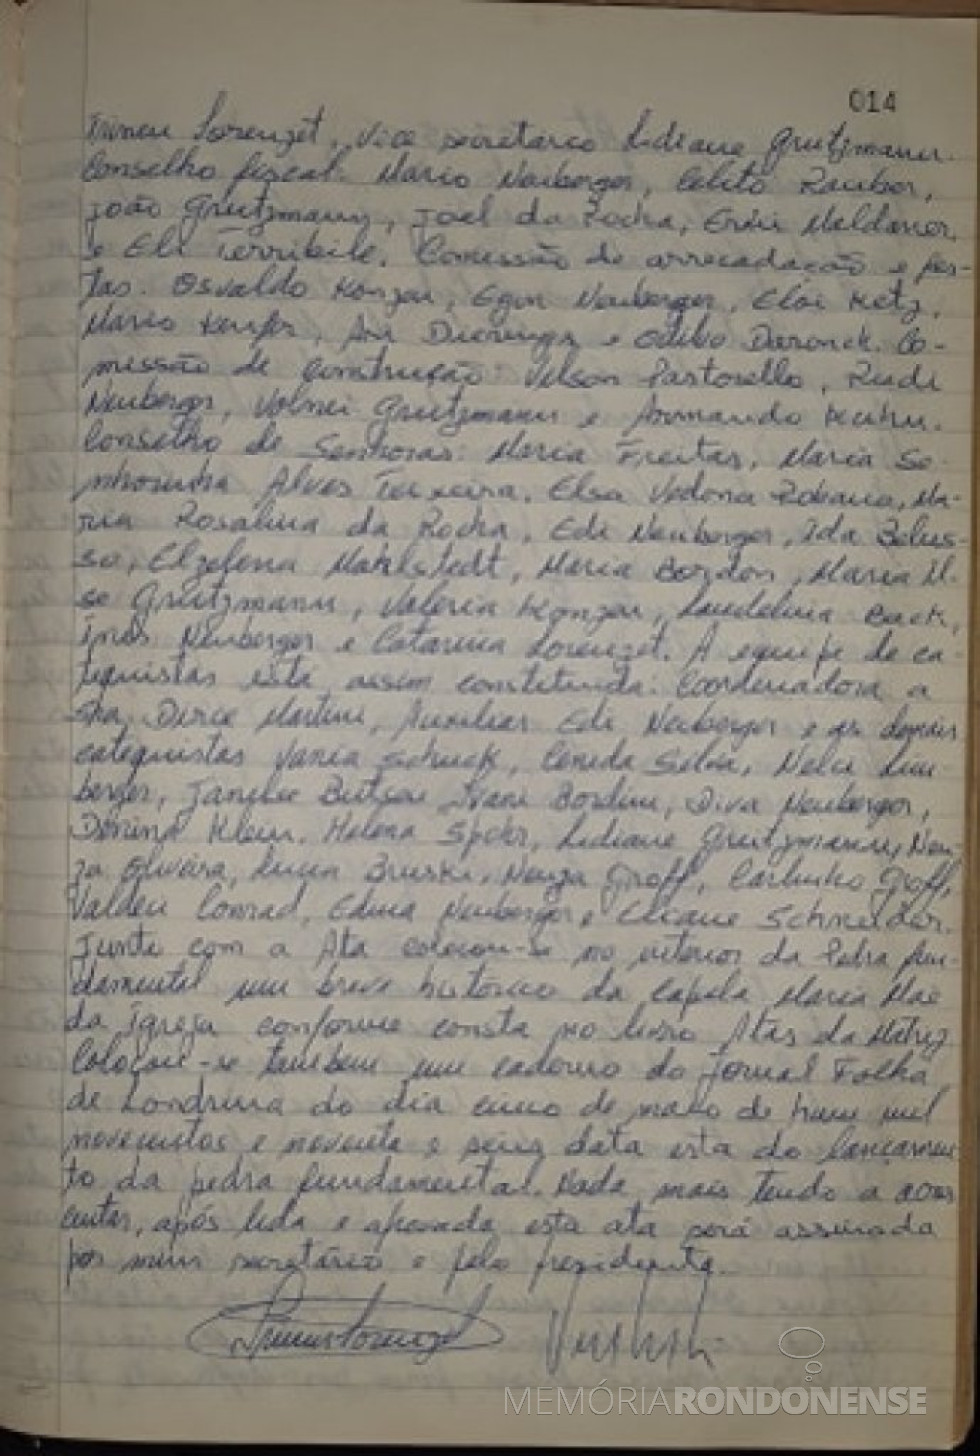 014
Irineu Lorenzet, Vice secretario Lidiane Grutzmann.
Conselho fiscal: Mario Neuberger, Celito Rauber,
João Grutzmann, Joel da Rocha, Erni Maldaner
e Eli Terribile. Comissão de arrecadação e fes-
tas. Osvaldo Konzen, Egon Neuberger, Elói Metz,
Mario Kempfer, Ari e Odilo Daronch. Co-
missão de construção: Vilson Pastorello, Rudi
Neuberger, Volnei Grutzmann e Armando Kuhn.
Conselho de Senhoras: Maria Freitas, Maria Se-
nhorinha Alves Teixeira, Elsa Vedona Robana, Ma-
ria Rosalina da Rocha, Edi Neuberger, Ida Belus-
so, Elzefena Mahlstedt, Maria Bordon, Maria Il-
se Grutzmann, Valeria Konzen, Laudelina Back,
Inês Neuberger e Catarina Lorenzet. A equipe de ca-
tequistas esta assim constituida: Coordenadora a
Sra. Dirce Martini, Auxiliar Edi Neuberger e as demais
catequistas Vania Schuck, Cenida Silva, Nelci Neu
berger, Janelie Ivani Bordin, Diva Neuberger,
Dorina Klein, Helena Spohr, Lidiane Grutzmann, Neu-
za Oliveira, Lucia Bruski, Neuza Groff, Carlinho Groff,
Valdeci Conrad, Edina Neuberger e Eliane Schneider.
Junto com a Ata colocou-se no interior da Pedra fun-
damental um breve histórico da capela Maria Mãe
da igreja conforme consta no livro Atas da Matriz
Colocou-se tambem um caderno do Jornal Folha
de Londrina do dia cinco de maio de hum mil
novecentos e noventa e seis data esta do lançamen
to da pedra fundamental. Nada mais tendo a acres
centar, após lida e aprovada esta ata será assinada
por mim secretário e pelo presidente.
Irineu Lorenzet
MEMÓRIARONDONENSE